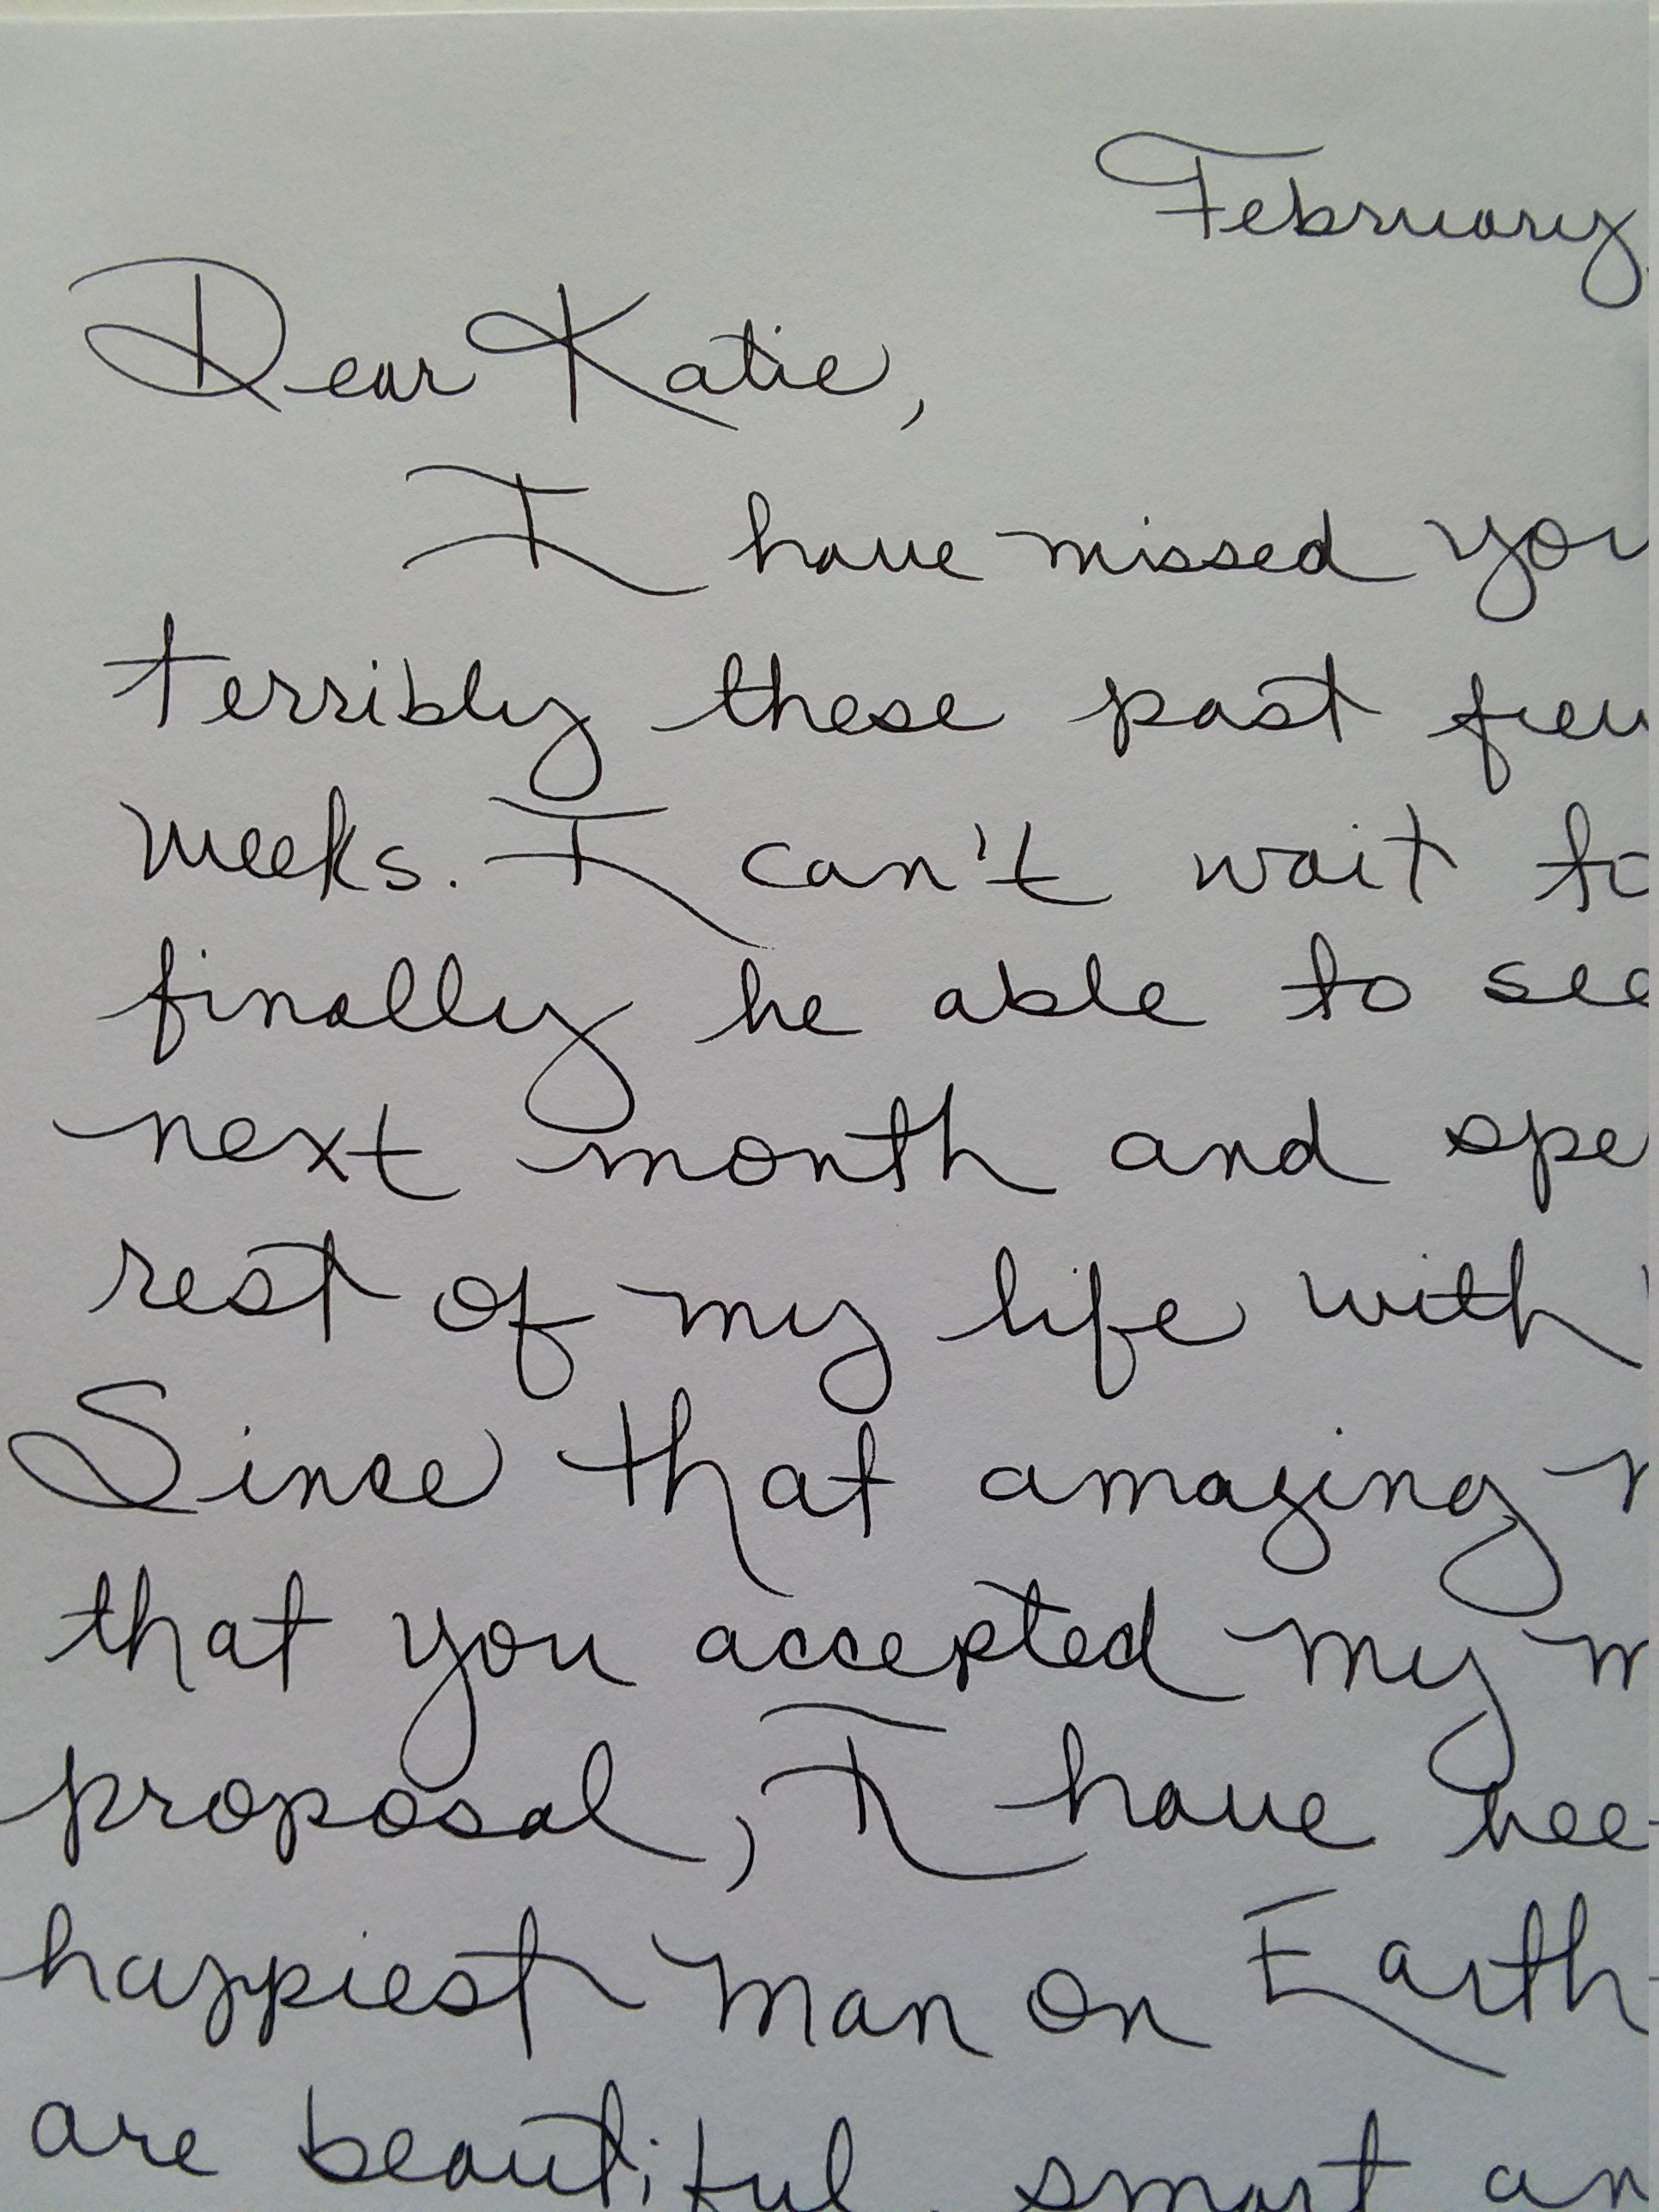 February
Dear Katie,
I have missed you
terribly these past few
weeks. I can't wait to
finally be able to see
next month and spe
rest of my life with
Since that amazing
that you accepted my m
proposal, I have bee
happiest man on Earth
are beautiful, smart an